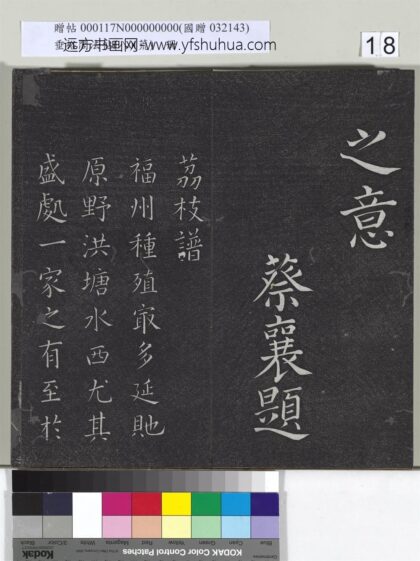 贈帖 000117N000000000(國贈 032143)
远方书画网 www.yfshuhua.com
18
之意
蔡襄題
荔枝譜
福州種殖㝡多延貤
原野洪塘水西尤其
盛處一家之有至於
Blue
Cyan
Green
Yellow
Red
Magenta
White
3/Color
Black
Kodak
KODAK Color Control Patches